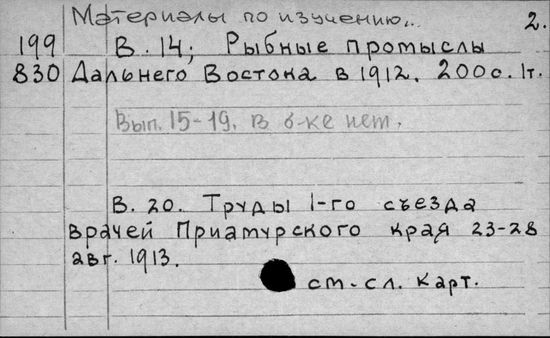 Материалы по изучению... 2.
199 В. 14; Рыбные промыслы
830 Дальнего Востока в 1912. 200с. 1т.
Вып. 15-19. в б-ке нет.
В. 20. Труды 1-го съезда
врачей Приамурского края 23-28
авг. 1913.
см. сл. карт.